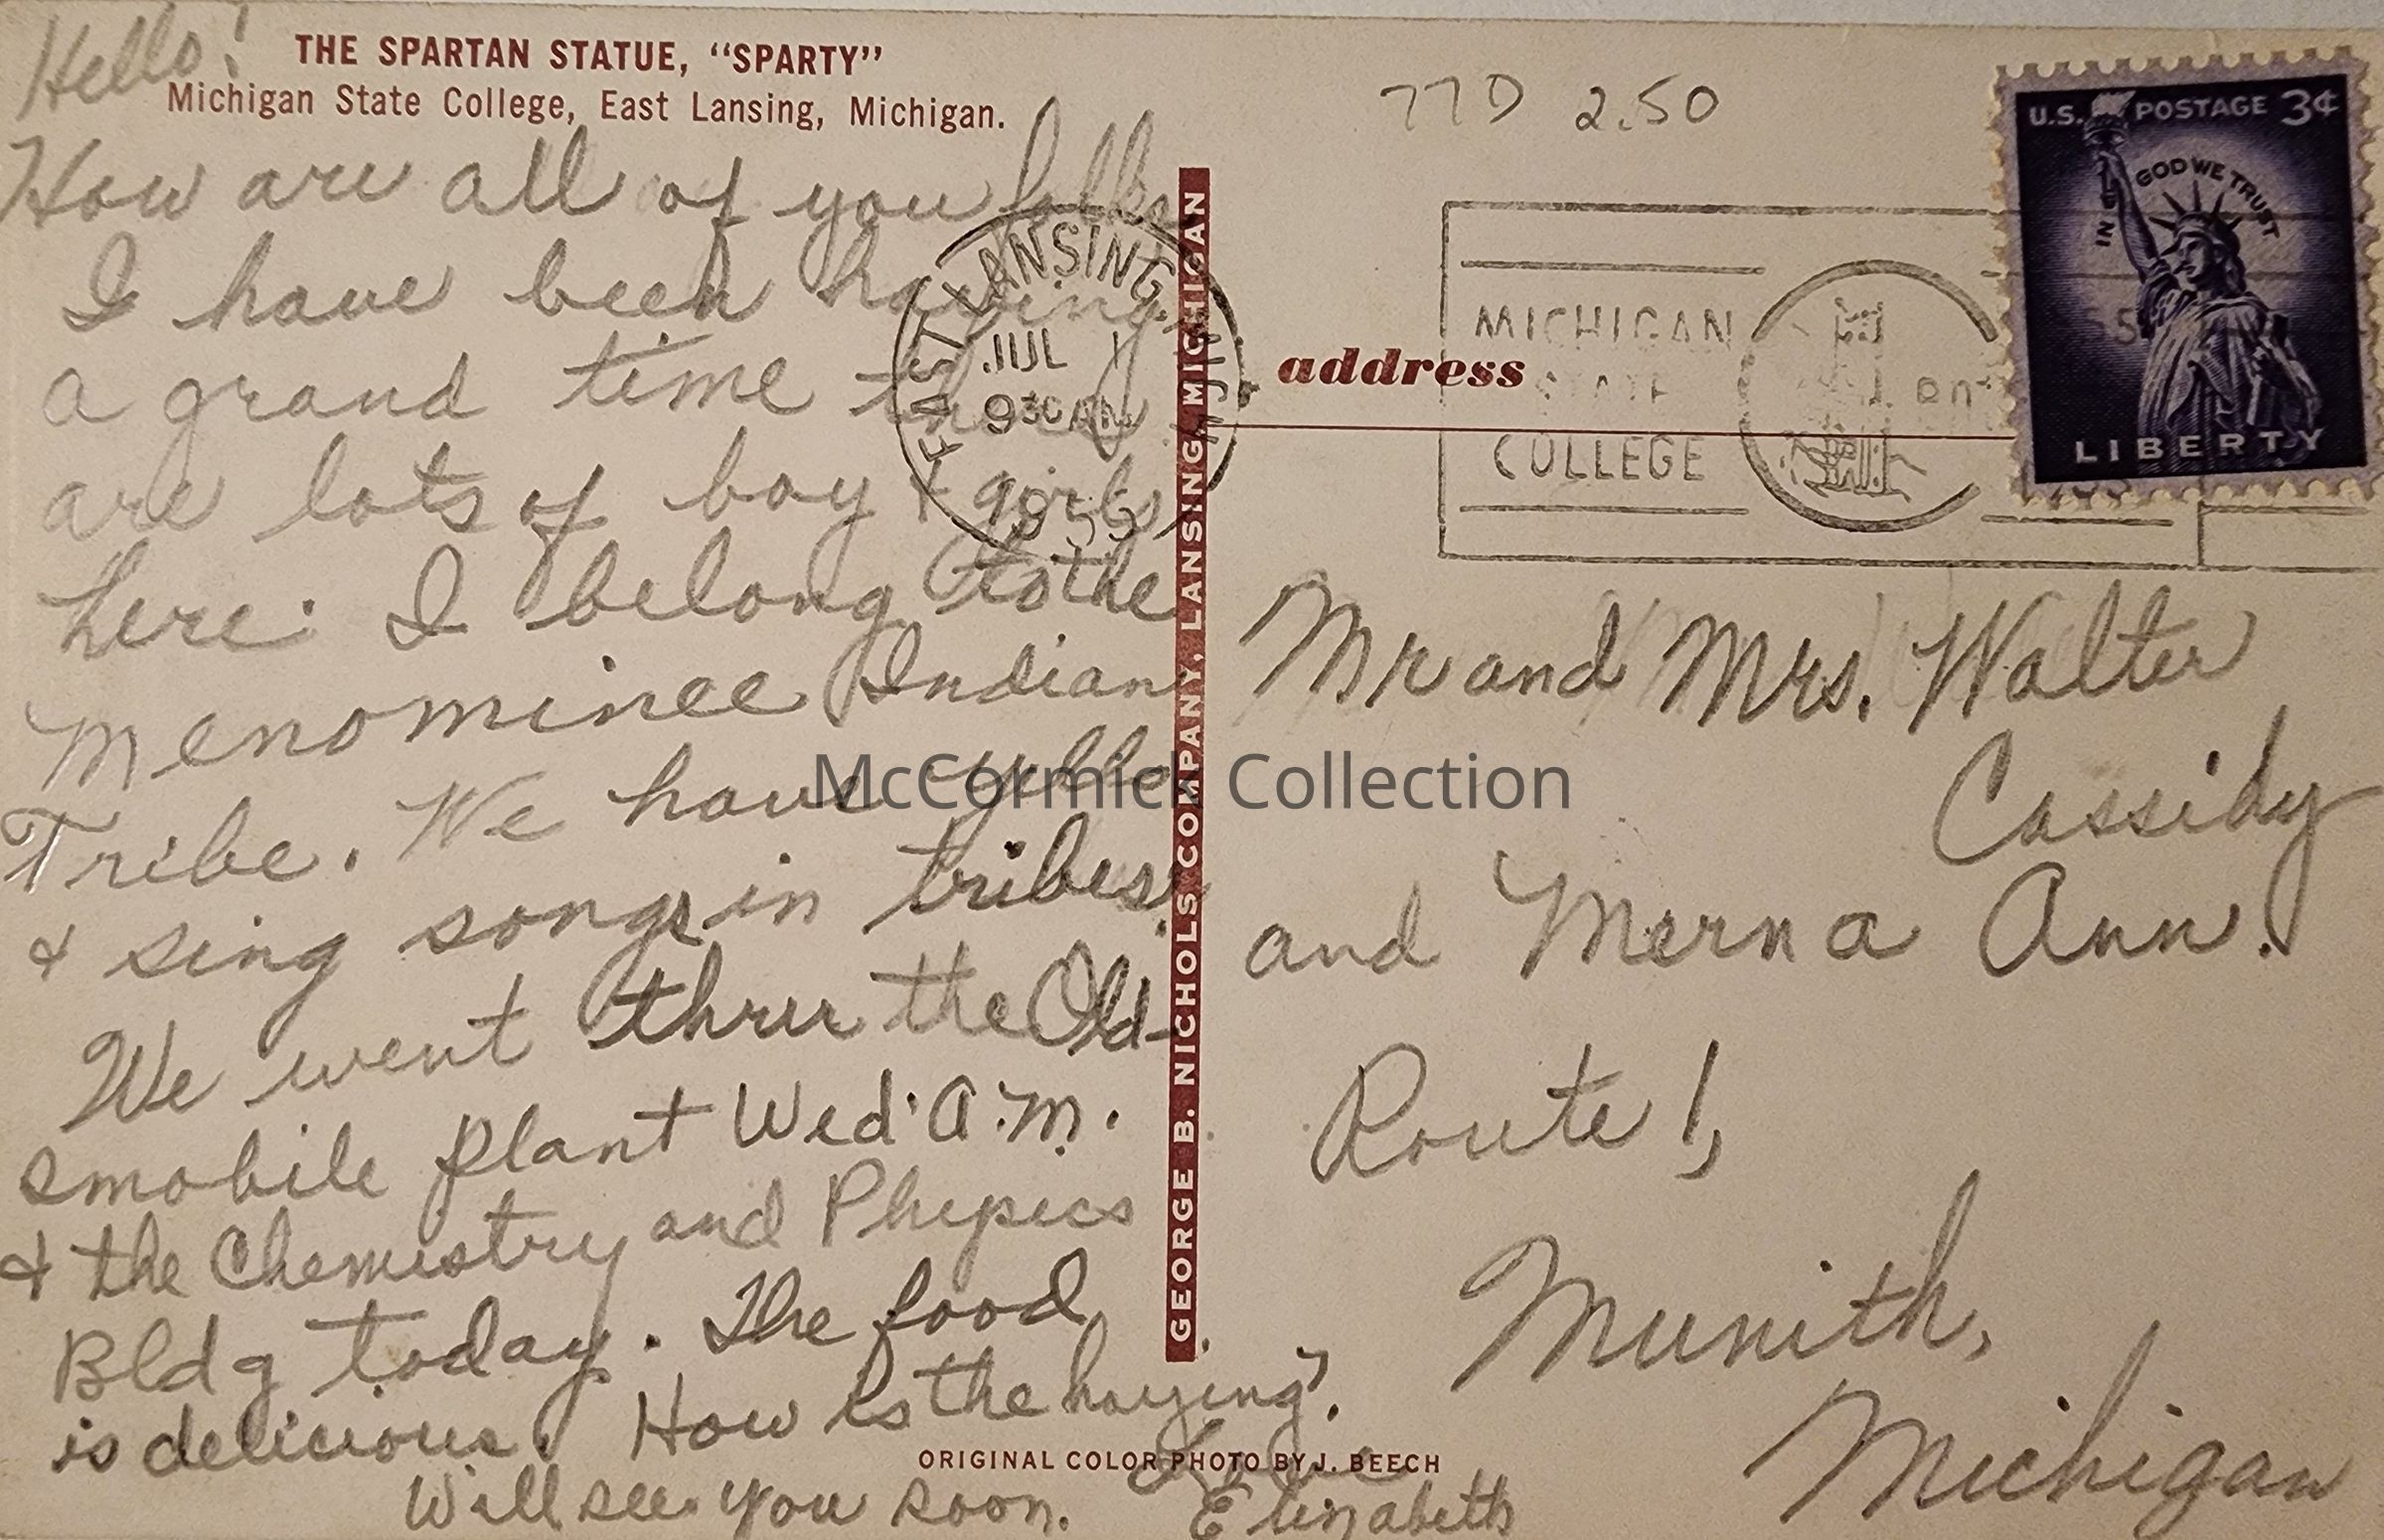 Hello!
THE SPARTAN STATUE, "SPARTY"
Michigan State College, East Lansing, Michigan.
How are all of you folks
I have been having
a grand time there
are lots of boy & girls
here. I belong to the
Menominee Indian
Tribe. We have yells
& sing songs in tribes.
We went thru the Old-
smobile plant Wed. A.M.
& the Chemistry and Phepics
Bldg today. The food
is delicious. How is the haying?
Will see you soon.
Love
Elizabeth
ORIGINAL COLOR PHOTO BY J. BEECH
GEORGE B. NICHOLS COMPANY, LANSING, MICHIGAN
77D 2.50
EAST LANSING
MICH
JUL 1
930 AM
1955
MICHIGAN
STATE
COLLEGE
U.S. POSTAGE 3¢
IN GOD WE TRUST
LIBERTY
address
Mr and Mrs. Walter
Cassidy
and Merna Ann.
Route 1,
Munith,
Michigan
McCormick Collection